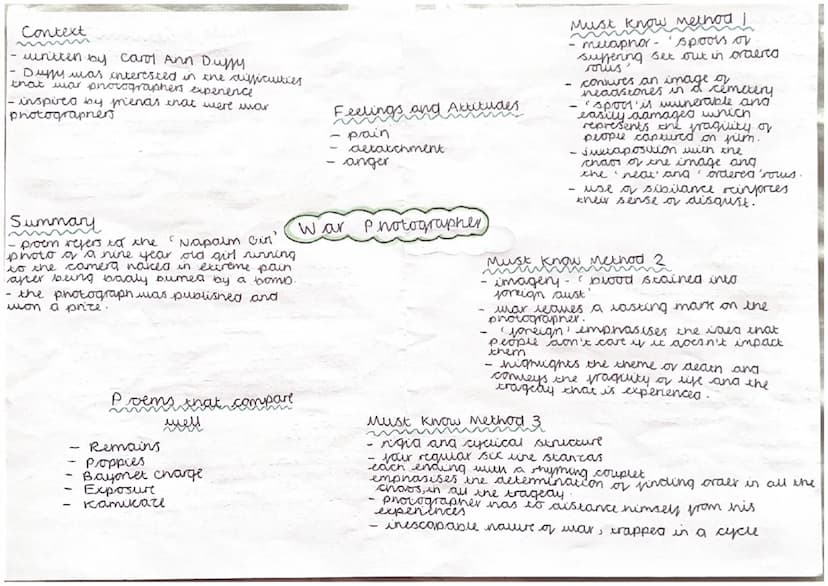 Context
- written by Carol Ann Duffy
- Duffy was interested in the difficulties
that war photographers experience
- inspired by friends that were war
photographers
Feelings and Attitudes
- pain
- detatchment
- anger
Must Know Method 1
- metaphor - 'spools of
suffering set out in ordered
rows'
- conjures an image of
headstones in a cemetery
- 'spool' is vulnerable and
easily damaged which
represents the fragility of
people captured on film.
- juxtaposition with the
chaos of the image and
the 'neat' and 'ordered' rows.
- use of sibilance reinforces
their sense of disgust.
War Photographer
Summary
- poem refers to the 'Napalm Girl'
photo of a nine year old girl running
to the camera naked in extreme pain
after being badly burned by a bomb.
- the photograph was published and
won a prize.
Must Know Method 2
- imagery - 'blood stained into
foreign dust'
- war leaves a lasting mark on the
photographer.
- 'foreign' emphasises the idea that
people don't care if it doesn't impact
them
- highlights the theme of death and
conveys the fragility of life and the
tragedy that is experienced.
Poems that compare
well
- Remains
- Poppies
- Bayonet Charge
- Exposure
- Kamikaze
Must Know Method 3
- rigid and cyclical structure
- four regular six line stanzas
each ending with a rhyming couplet
emphasises the determination of finding order in all the
chaos, in all the tragedy.
- photographer has to distance himself from his
experiences
- inescapable nature of war, trapped in a cycle